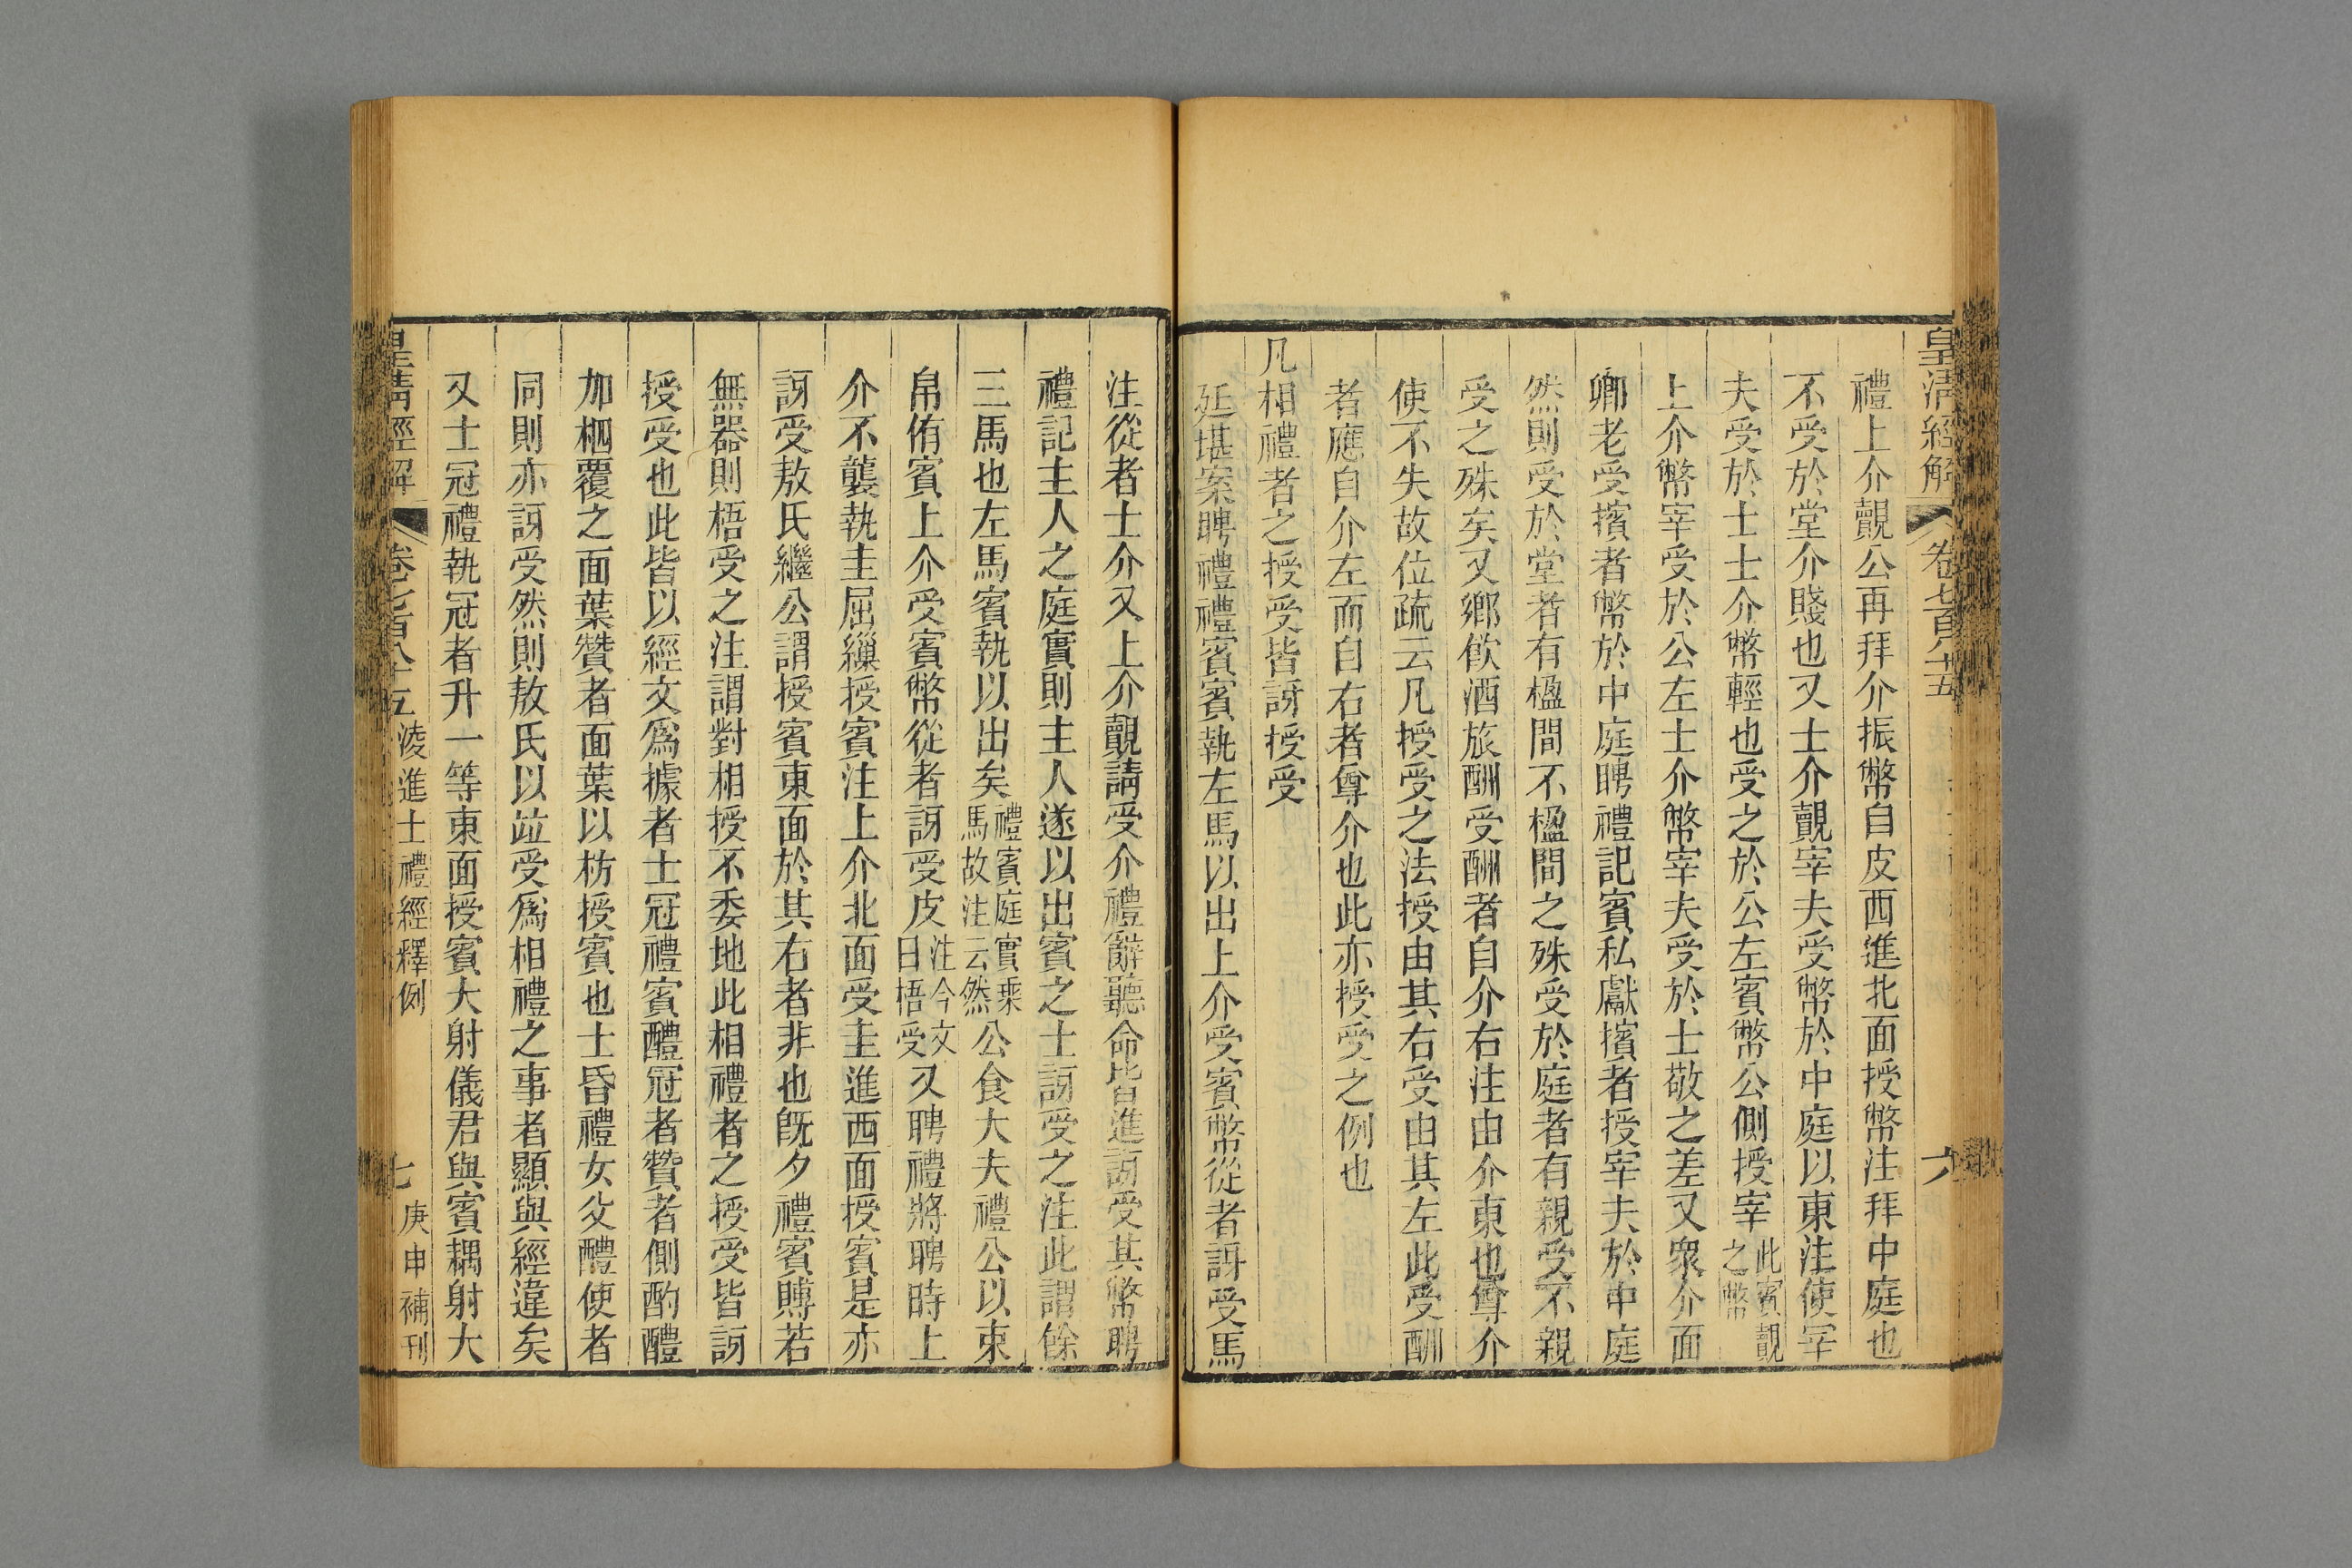 皇清經解 卷七百八十五 六
禮上介覿公再拜介振幣自皮西進北面授幣注拜中庭也
不受於堂介賤也又士介覿宰夫受幣於中庭以東注使宰
夫受於士士介幣輕也受之於公左賓幣公側授宰此賓覿之幣
上介幣宰受於公左士介幣宰夫受於士敬之差又眾介面
卿老受擯者幣於中庭聘禮記賓私獻擯者授宰夫於中庭
然則受於堂者有楹間不楹間之殊受於庭者有親受不親
受之殊矣又鄉飲酒旅酬受酬者自介右注由介東也尊介
使不失故位疏云凡授受之法授由其右受由其左此受酬
者應自介左而自右者尊介也此亦授受之例也
凡相禮者之授受皆訝授受
廷堪案聘禮禮賓賓執左馬以出上介受賓幣從者訝受馬
注從者士介又上介覿請受介禮辭聽命皆進訝受其幣聘
禮記主人之庭實則主人遂以出賓之士訝受之注此謂餘
三馬也左馬賓執以出矣禮賓庭實乘馬故注云然公食大夫禮公以束
帛侑賓上介受賓幣從者訝受皮注今文曰梧受又聘禮將聘時上
介不襲執圭屈繅授賓注上介北面受圭進西面授賓是亦
訝受敖氏繼公謂授賓東面於其右者非也既夕禮賓賻若
無器則梧受之注謂對相授不委地此相禮者之授受皆訝
授受也此皆以經文爲據者士冠禮賓醴冠者贊者側酌醴
加柶覆之面葉贊者面葉以枋授賓也士昏禮女父醴使者
同則亦訝受然則敖氏以竝受爲相禮之事者顯與經違矣
又士冠禮執冠者升一等東面授賓大射儀君與賓耦射大
皇清經解 卷七百八十五 淩進士禮經釋例 七 庚申補刊